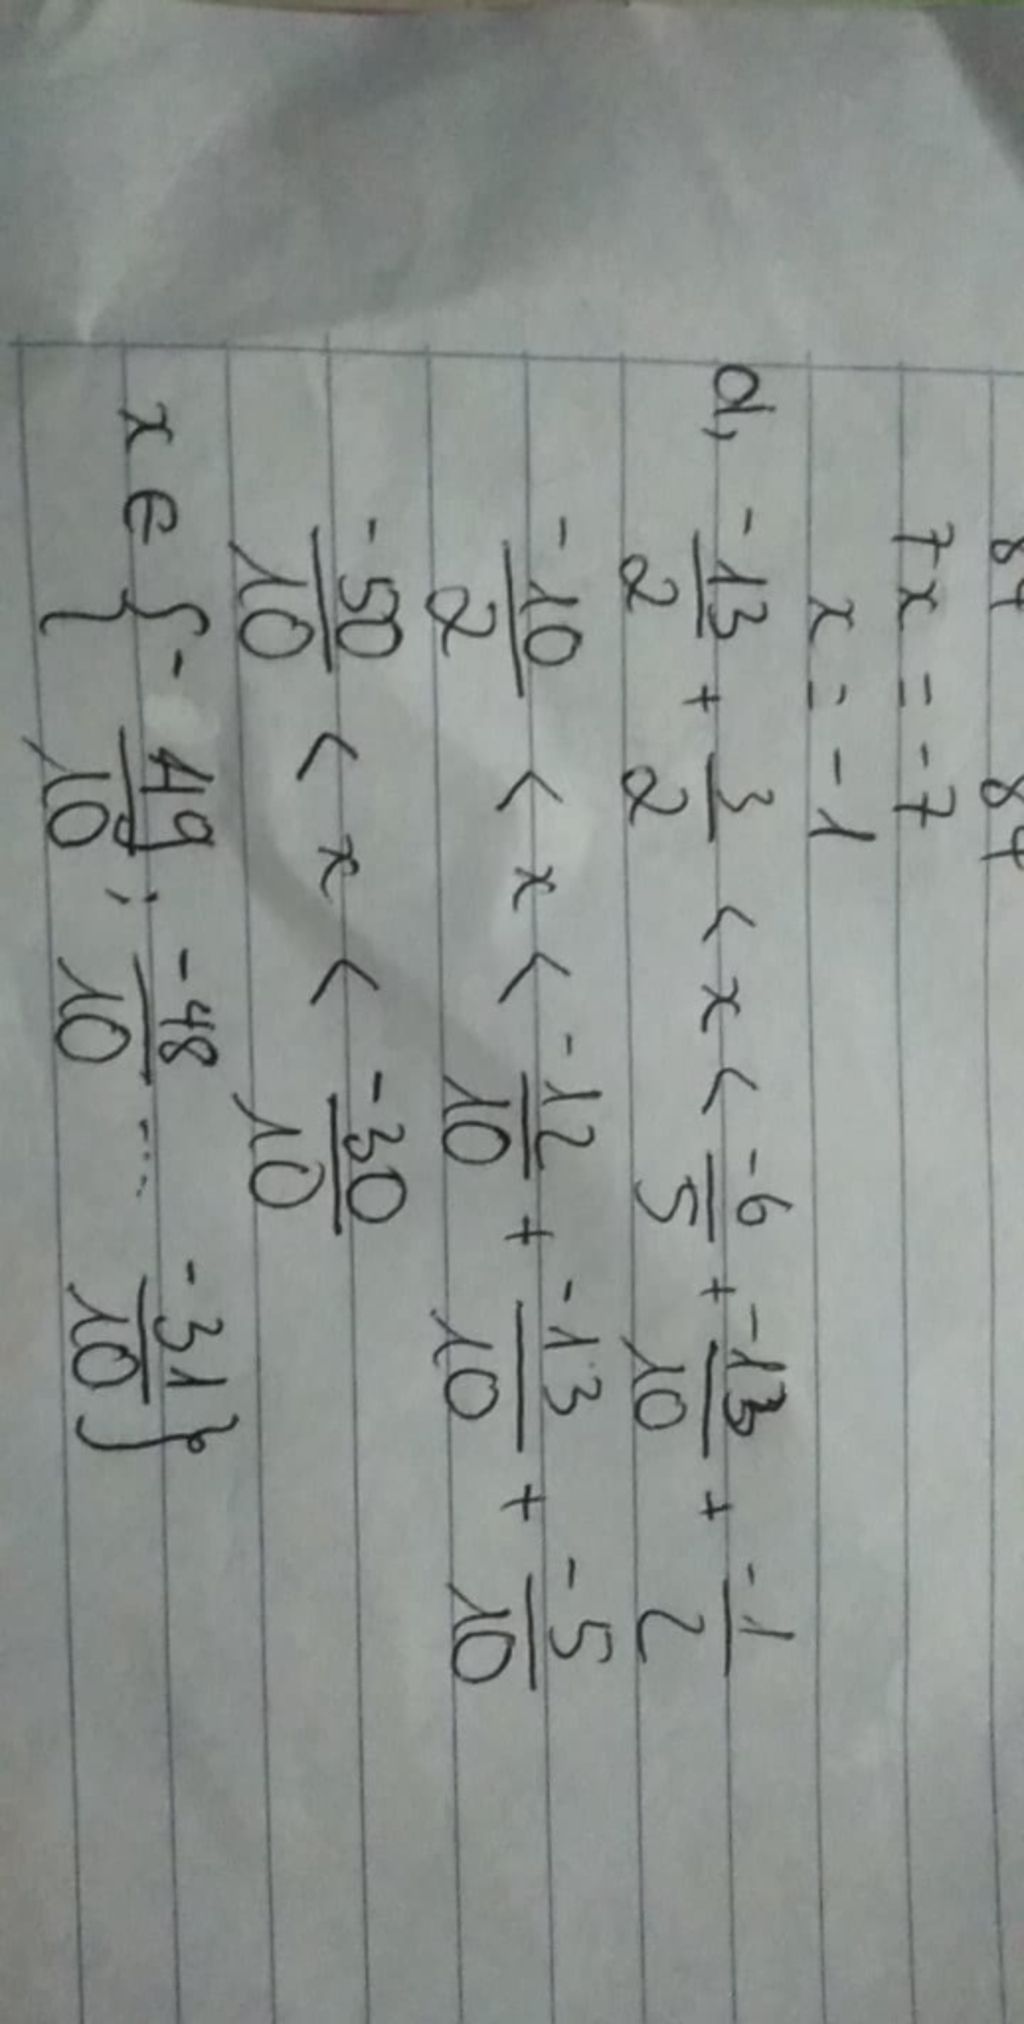 84 84
7x = -7
x = -1
d, -13/2 + 3/2 < x < -6/5 + -13/10 + -1/2
-10/2 < x < -12/10 + -13/10 + -5/10
-50/10 < x < -30/10
x ∈ {-49/10; -48/10 ... -31/10}